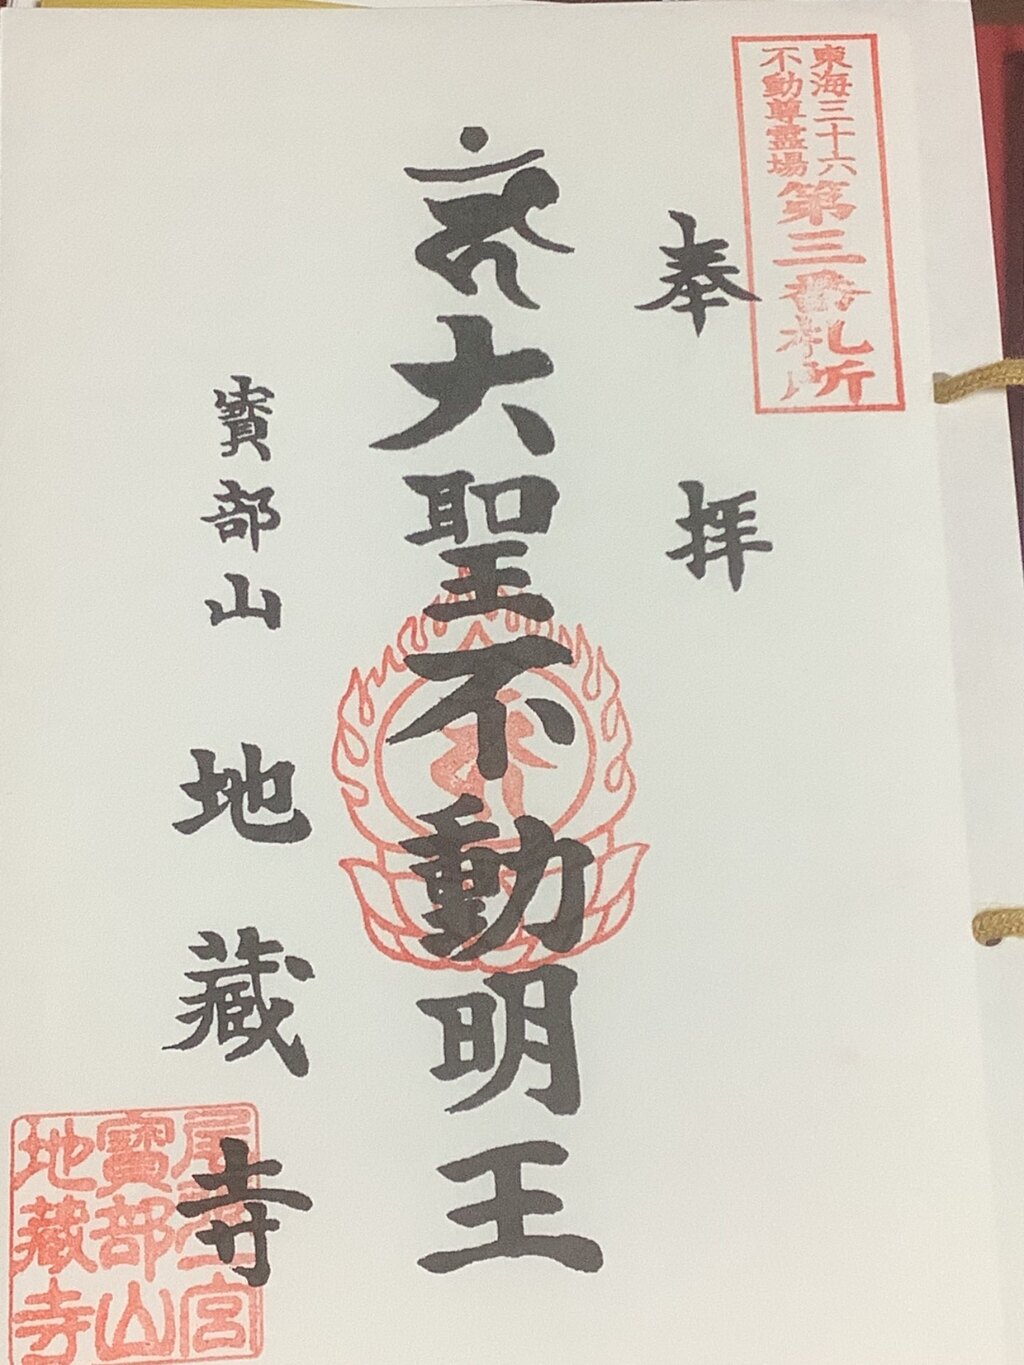 東海三十六
不動尊霊場
第三番札所
奉拝
大聖不動明王
寳部山
地蔵寺
宮
寳部山
地蔵寺